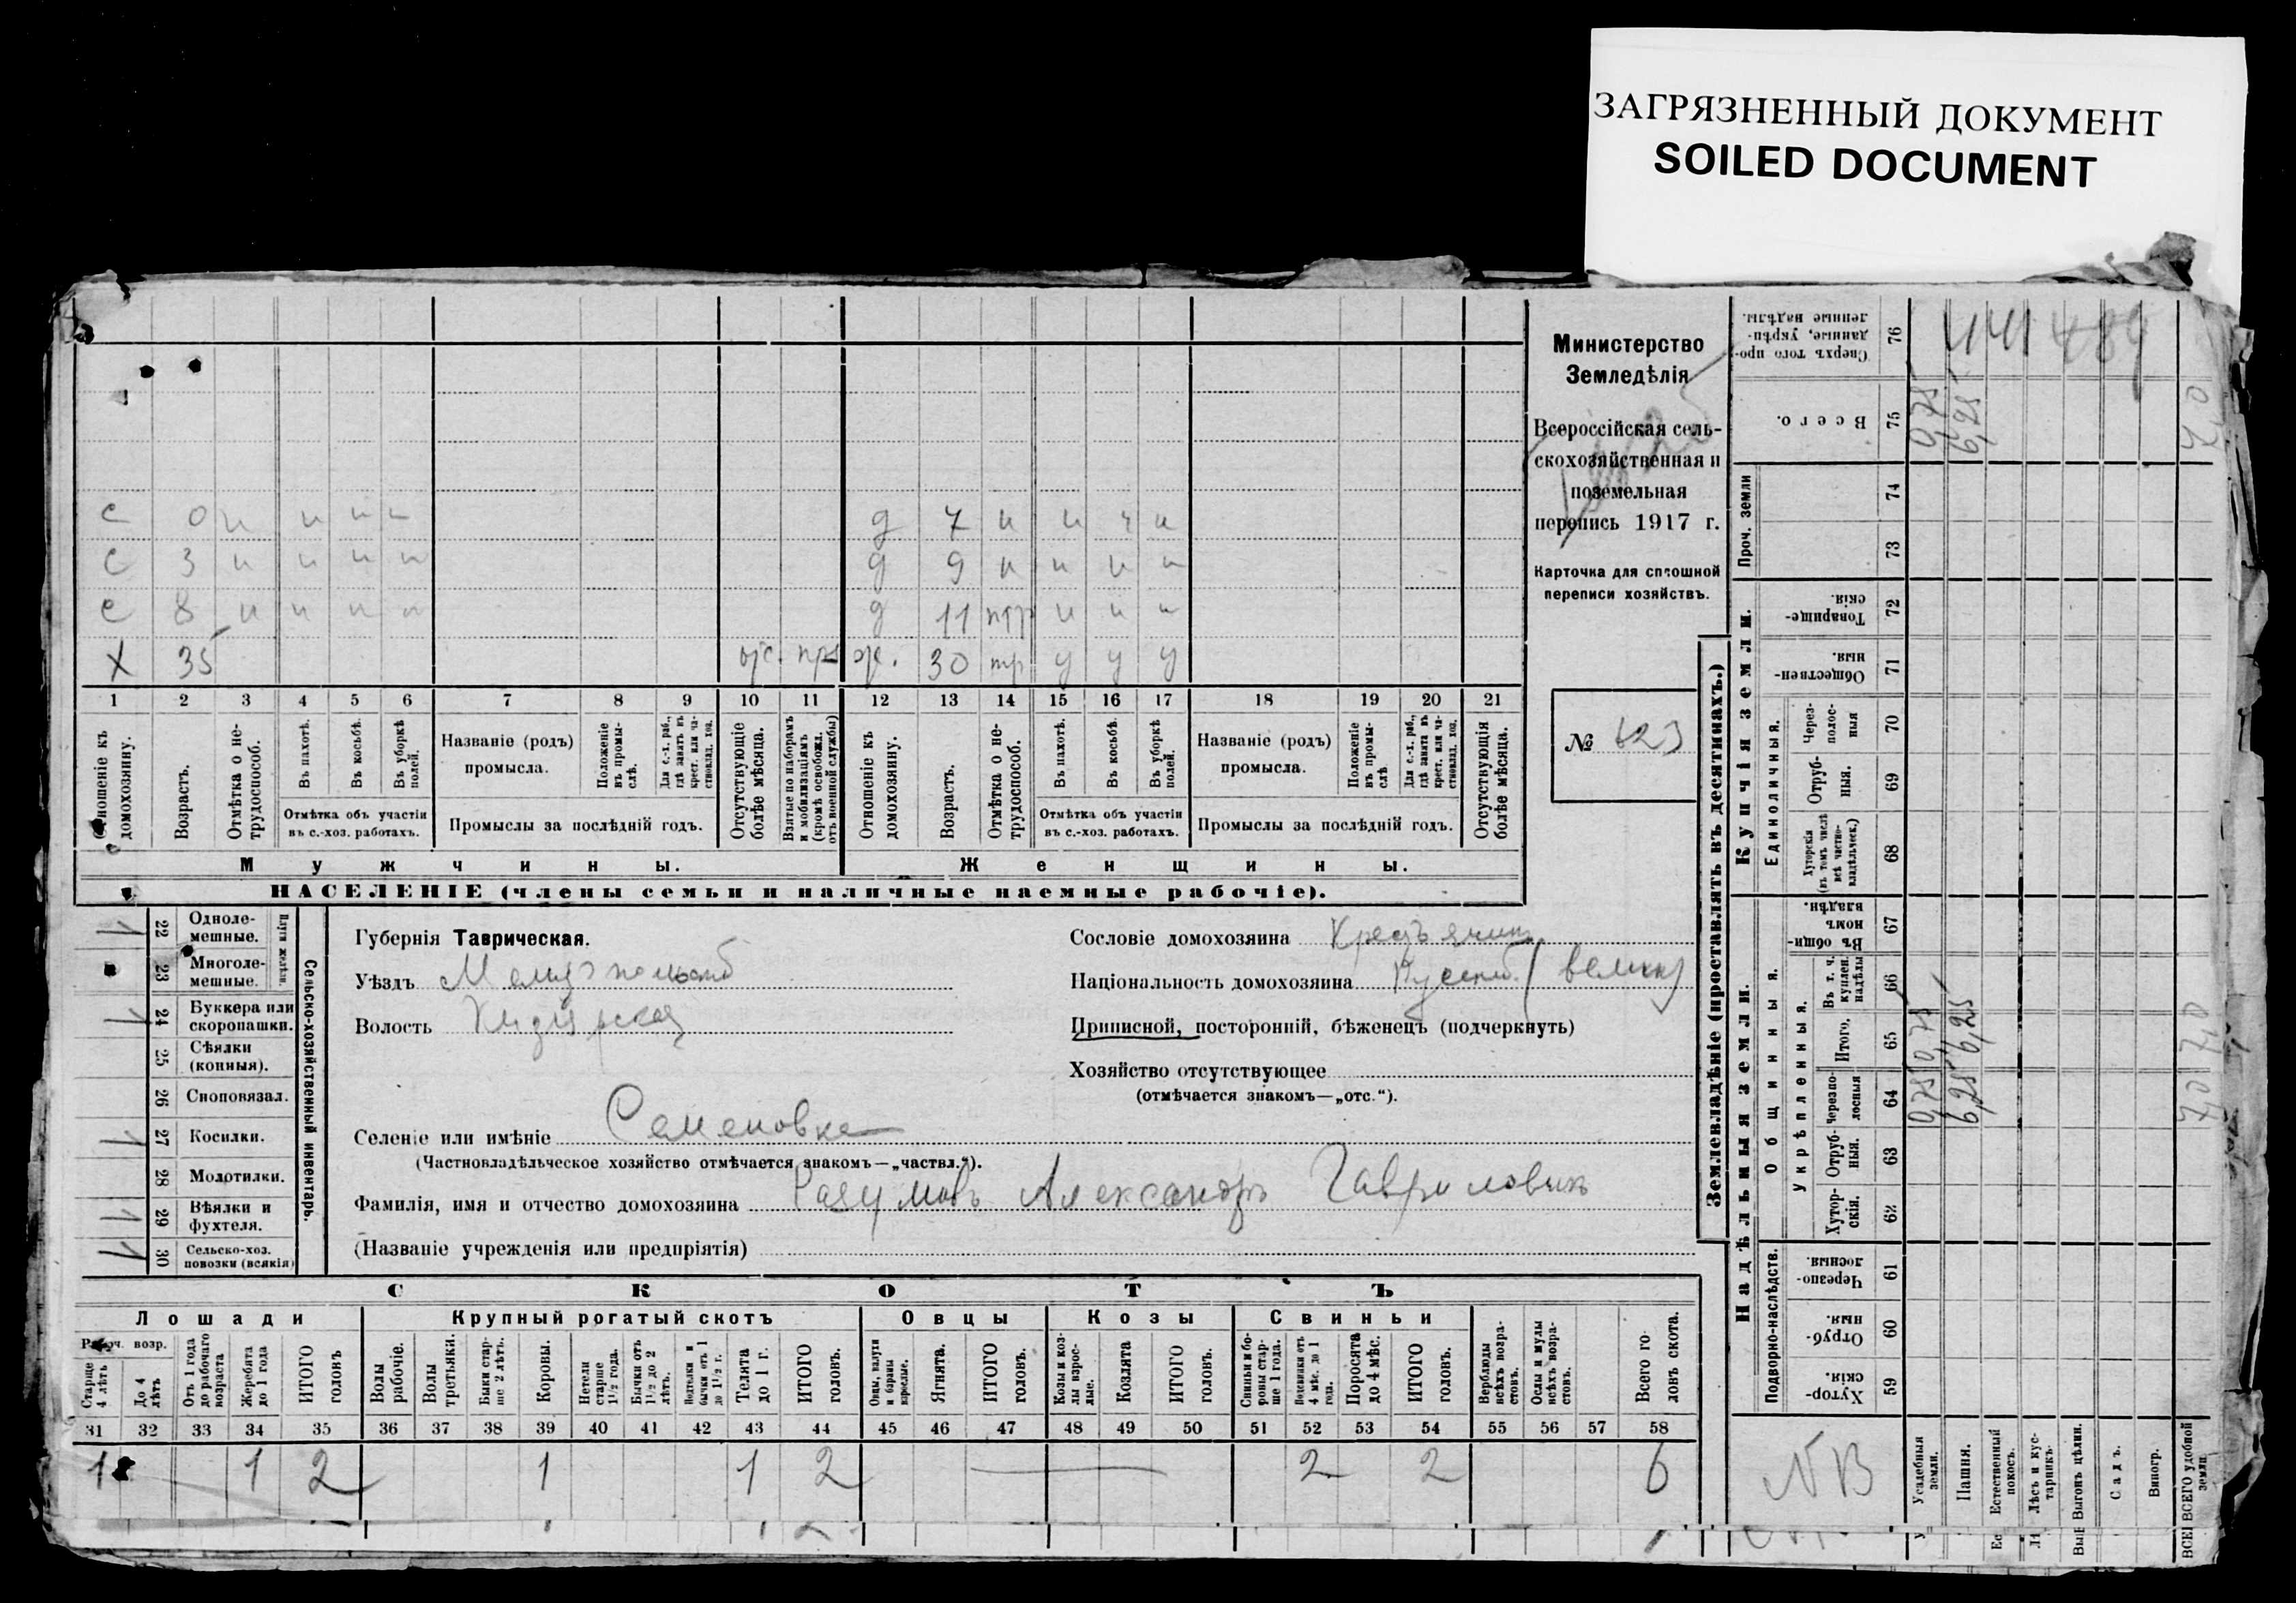 ЗАГРЯЗНЕННЫЙ ДОКУМЕНТ
SOILED DOCUMENT
Министерство
Земледѣлія
Всероссійская сель-
скохозяйственная и
поземельная
перепись 1917 г.
Карточка для сплошной
переписи хозяйствъ.
№ 623
с 0 н н н н д 7 н н н н
с 3 н н н н д 9 н н н н
с 8 н н н н д 11 нтр н н н
х 35 отс. пр. ж. 30 тр у у у
1 2 3 4 5 6 7 8 9 10 11 12 13 14 15 16 17 18 19 20 21
Отношеніе къ домохозяину.
Возрастъ.
Отмѣтка о не-трудоспособ.
Въ пахотѣ.
Въ косьбѣ.
Въ уборкѣ полей.
Отмѣтка объ участіи
въ с.-хоз. работахъ.
Названіе (родъ)
промысла.
Положеніе въ промы-слѣ.
Для с.-х. раб., гдѣ занятъ въ крест. или ча-стновлад. хоз.
Промыслы за послѣдній годъ.
Отсутствующіе болѣе мѣсяца.
Взятые по наборамъ и мобилизаціямъ (кромѣ освобожд. отъ военной службы)
Отношеніе къ домохозяину.
Возрастъ.
Отмѣтка о не-трудоспособ.
Въ пахотѣ.
Въ косьбѣ.
Въ уборкѣ полей.
Отмѣтка объ участіи
въ с.-хоз. работахъ.
Названіе (родъ)
промысла.
Положеніе въ промы-слѣ
Для с.-х. раб., гдѣ занята въ крест. или ча-стновлад. хоз.
Промыслы за послѣдній годъ.
Отсутствующія болѣе мѣсяца.
Мужчины.
Женщины.
НАСЕЛЕНІЕ (члены семьи и наличные наемные рабочіе).
Сельско-хозяйственный инвентарь.
Плуги желѣзн.
22 Одноле-мешные.
23 Многоле-мешные.
24 Буккера или скоропашки.
25 Сѣялки (конныя).
26 Сноповязал.
27 Косилки.
28 Молотилки.
29 Вѣялки и фухтеля.
30 Сельско-хоз. повозки (всякія)
Губернія Таврическая.
Уѣздъ Мелитопольскій
Волость
Селеніе или имѣніе Семеновка
(Частновладѣльческое хозяйство отмѣчается знакомъ—„частвл.“).
Фамилія, имя и отчество домохозяина Разумовъ Александръ Гавриловичъ
(Названіе учрежденія или предпріятія)
Сословіе домохозяина Крестьянинъ
Національность домохозяина Русскій (великор
Приписной, посторонній, бѣженецъ (подчеркнуть)
Хозяйство отсутствующее
(отмѣчается знакомъ—„отс.“).
СКОТЪ
Лошади
Крупный рогатый скотъ
Овцы
Козы
Свиньи
Рабоч. возр.
Старше 4 лѣтъ
До 4 лѣтъ
Отъ 1 года до рабочаго возраста
Жеребята до 1 года
ИТОГО головъ
Волы рабочіе.
Волы третьяки.
Быки стар-ше 2 лѣтъ.
Коровы.
Нетели старше 1½ года.
Бычки отъ 1½ до 2 лѣтъ.
Подтелки и бычки отъ 1 до 1½ г.
Телята до 1 г.
ИТОГО головъ.
Овцы, валухи и бараны взрослые.
Ягнята.
ИТОГО головъ.
Козы и коз-лы взрос-лые.
Козлята
ИТОГО головъ.
Свиньи и бо-ровы стар-ше 1 года.
Подсвинки отъ 4 мѣс. до 1 года.
Поросята до 4 мѣс.
ИТОГО головъ.
Верблюды всѣхъ возра-стовъ.
Ослы и мулы всѣхъ возра-стовъ.
Всего го-ловъ скота.
31 32 33 34 35 36 37 38 39 40 41 42 43 44 45 46 47 48 49 50 51 52 53 54 55 56 57 58
1 1 2 1 1 2 2 2 6
Землевладѣніе (проставлять въ десятинахъ.)
Надѣльныя земли.
Купчія земли.
Проч. земли
Подворно-наслѣдств.
Общинныя.
Укрѣпленныя.
Единоличныя.
76 Сверхъ того про-данные, укрѣп-ленные надѣлы.
75 Всего.
74
73
72 Товарище-скія.
71 Обществен-ныя.
70 Через-полос-ныя
69 Отруб-ныя.
68 Хуторскія (въ томъ числѣ всѣ частно-владѣльческ.)
67 Въ общи-номъ владѣн.
66 Въ т. ч. куплен. надѣлы
65 Итого.
64 Черезпо-лосныя
63 Отруб-ныя.
62 Хутор-скія.
61 Черезпо-лосныя.
60 Отруб-ныя.
59 Хутор-скія.
Усадебныя земли.
Пашня.
Естественный покосъ.
Лѣсъ и кус-тарникъ.
Выгонъ цѣлин.
Садъ.
Виногр.
ВСЕГО удобной земли.
0,75 0,75 0,75
6,25 6,25 6,25
7,0 7,0 7,0
441 489
NB